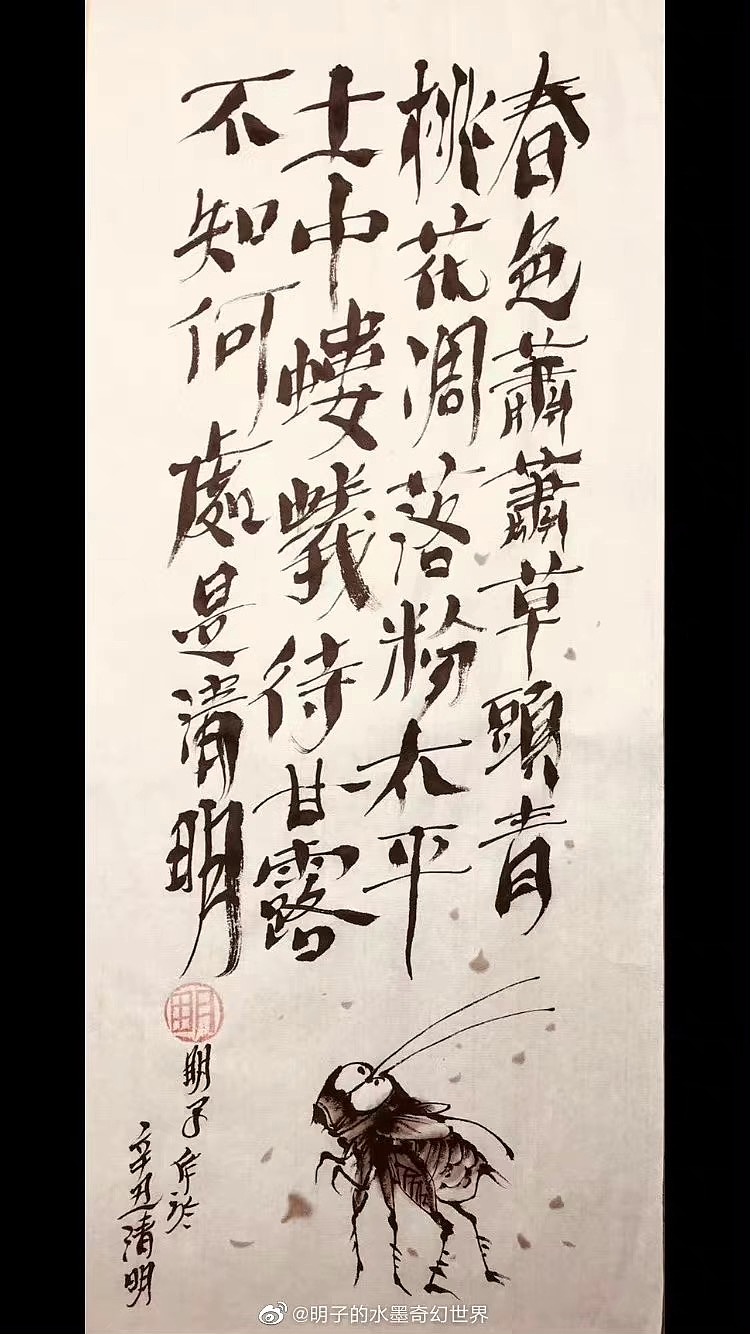 春色蕭蕭草頭青
桃花凋落粉太平
土中螻蟻待甘露
不知何處是清明
明
明子於
辛丑清明
@明子的水墨奇幻世界